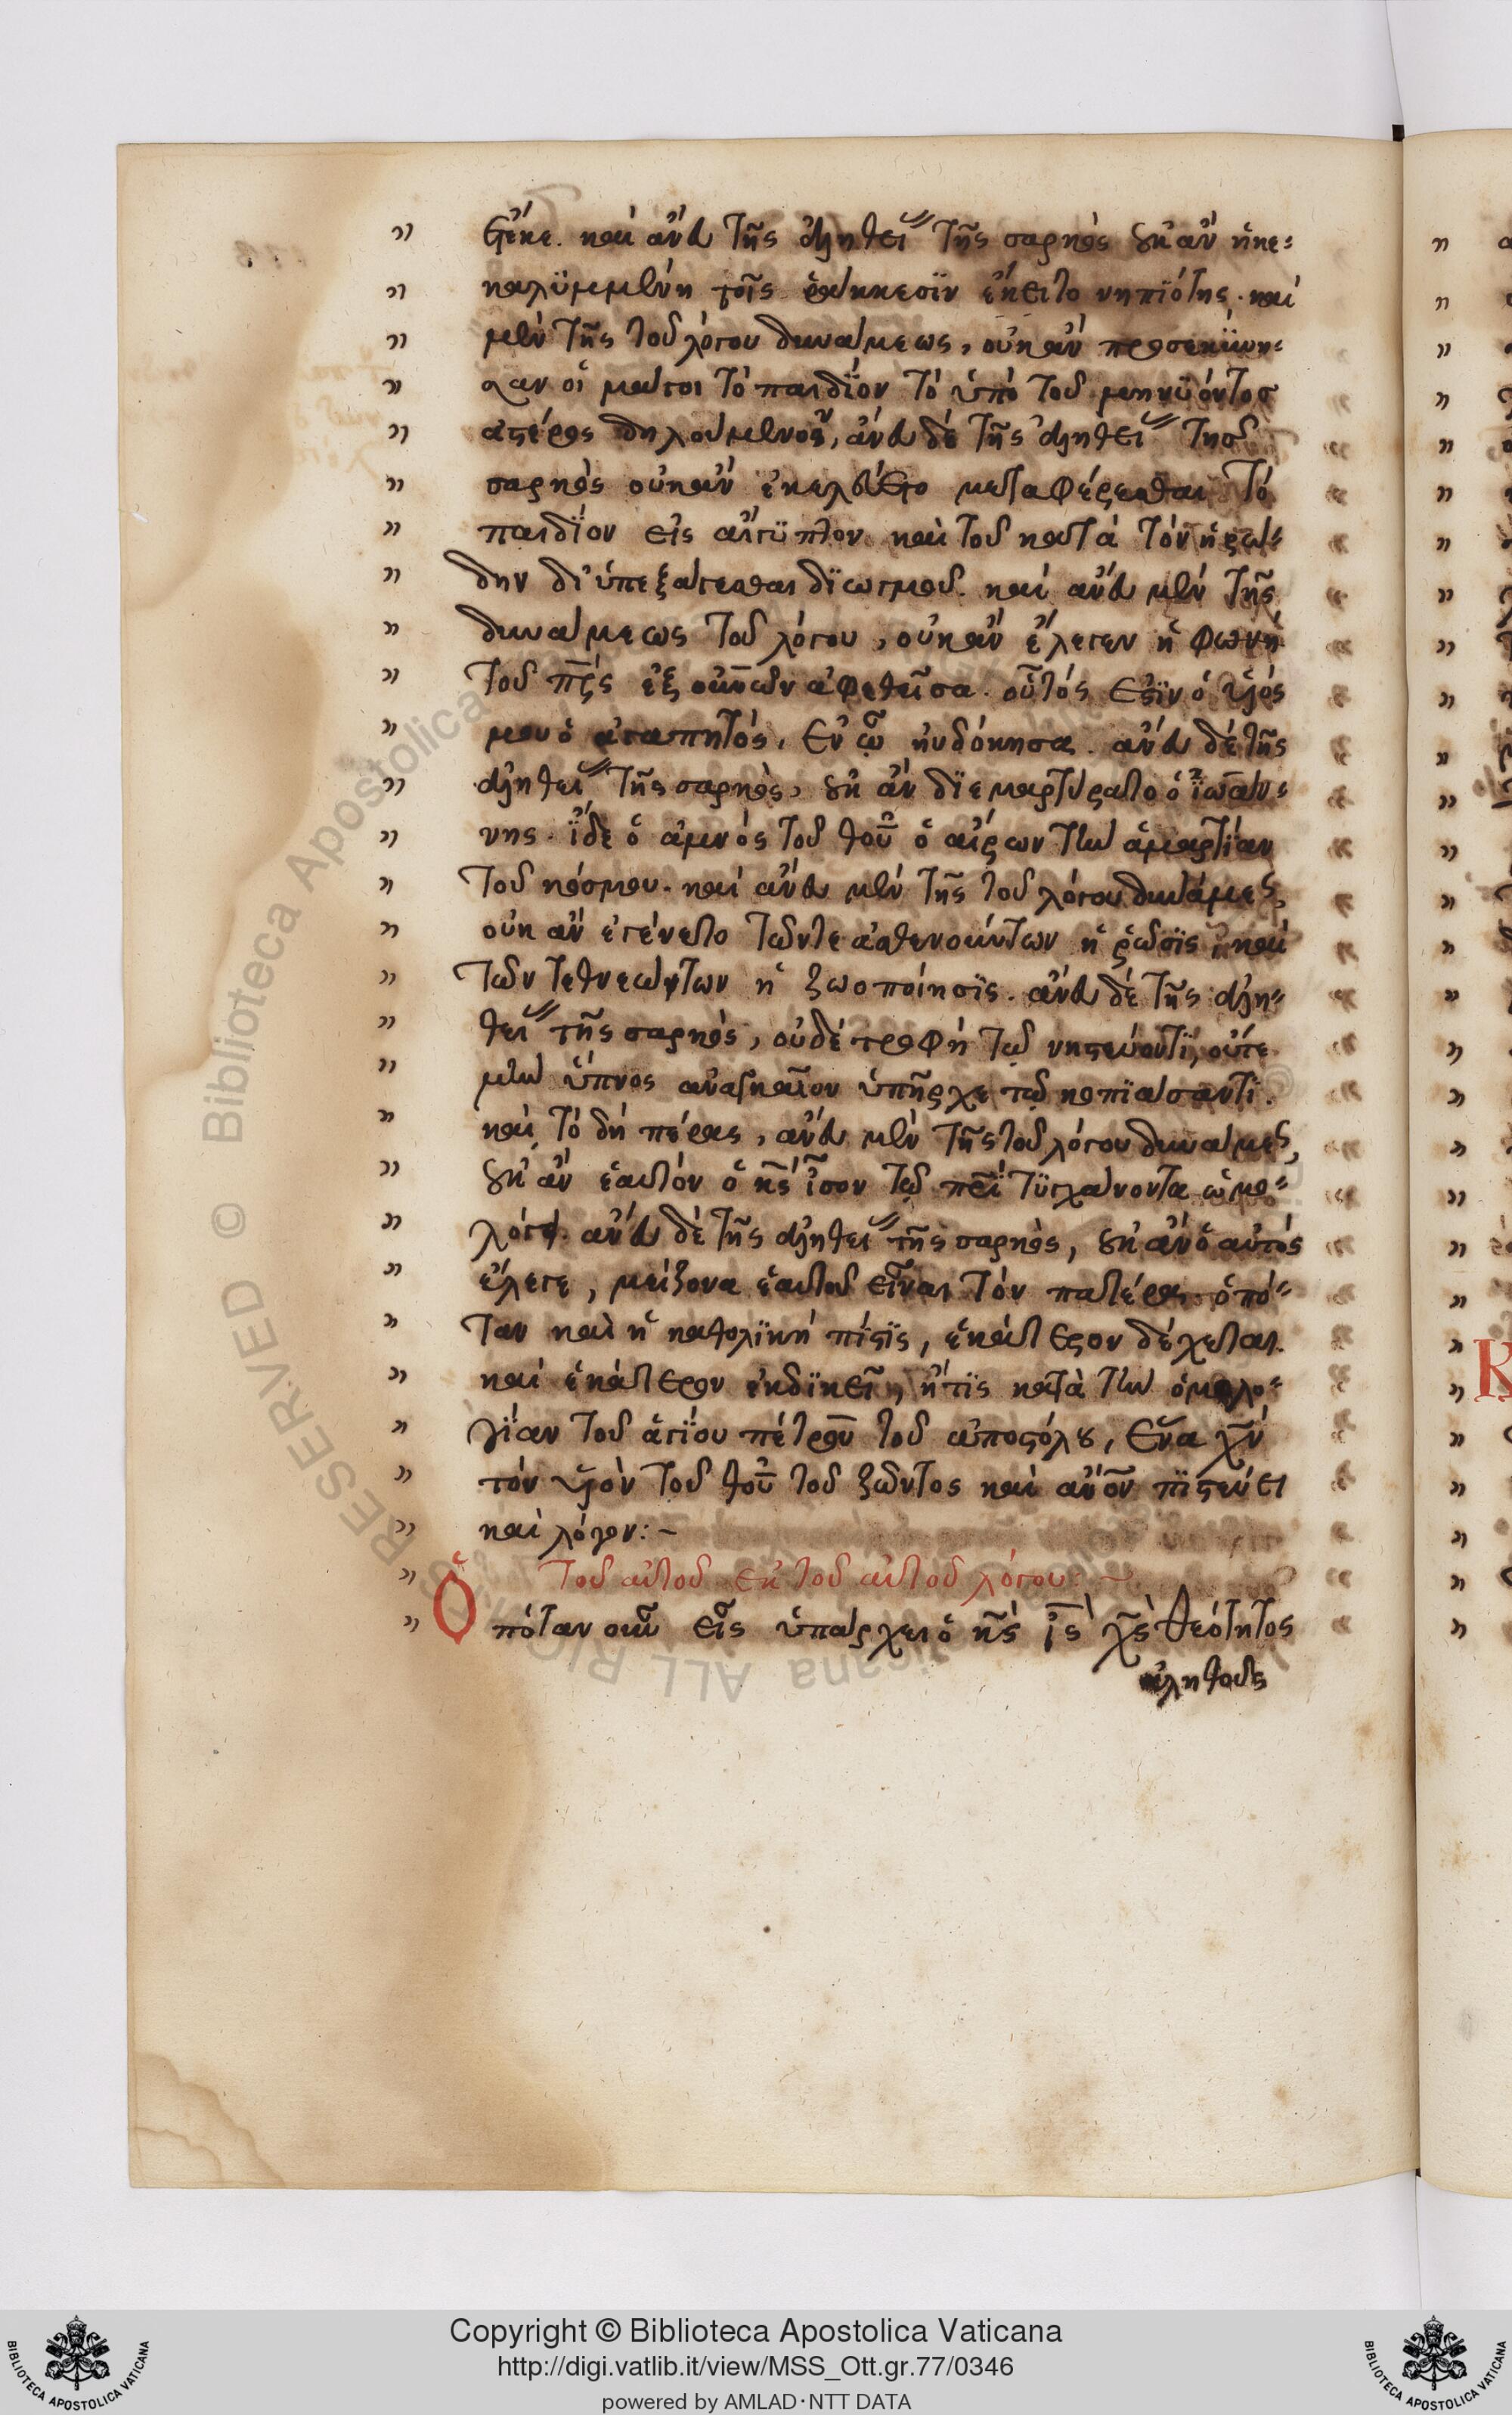 ἔτεκε. καὶ ἄνευ τῆς ἀληθείας τῆς σαρκὸς οὐκ ἂν ἡ κε-
καλυμμένη τοῖς ῥάκκεσϊν ἔκειτο νηπϊότης. καὶ
μὲν τῆς τοῦ λόγου δυνάμεως, οὐκ ἂν προσεκύνη-
σαν οἱ μάγοι τὸ παιδΐον τὸ ὑπὸ τοῦ μηνϋόντος
ἀστέρος δηλούμενον, ἄνευ δὲ τῆς ἀληθείας τῆς
σαρκὸς οὐκ ἂν ἐκελεύετο μεταφέρεσθαι τὸ
παιδΐον εἰς αἴγϋπτον καὶ τοῦ κατὰ τὸν ἡρώ-
δην δι' ὑπεξάγεσθαι δϊωγμοῦ. καὶ ἄνευ μὲν τῆς
δυνάμεως τοῦ λόγου, οὐκ ἂν ἔλεγεν ἡ φωνὴ
τοῦ πρς ἐξ οὐνῶν ἀφεθεῖσα. οὗτός ἐστϊν ὁ υἱός
μου ὁ ἀγαπητός, ἐν ᾧ ηὐδόκησα. ἄνευ δὲ τῆς
ἀληθείας τῆς σαρκὸς, οὐκ ἂν δϊεμαρτύρατο ὁ ἰωάν-
νης. ἴδε ὁ ἀμνὸς τοῦ θοῦ ὁ αἴρων τὴν ἁμαρτΐαν
τοῦ κόσμου. καὶ ἄνευ μὲν τῆς τοῦ λόγου δυνάμεως,
οὐκ ἂν ἐγένετο τῶν τε ἀσθενούντων ἡ ῥῶσϊς καὶ
τῶν τεθνεώτων ἡ ζωοποίησϊς. ἄνευ δὲ τῆς ἀλη-
θείας τῆς σαρκὸς, οὐδὲ τροφὴ τῷ νηστεύοντϊ, οὔτε
μὴν ὕπνος ἀναγκαῖον ὑπῆρχε τῷ κοπϊάσαντϊ.
καὶ τὸ δὴ πέρας, ἄνευ μὲν τῆς τοῦ λόγου δυνάμεως,
οὐκ ἂν ἑαυτὸν ὁ κς ἴσον τῷ πρϊ τϋγχάνοντα ὡμο-
λόγει. ἄνευ δὲ τῆς ἀληθείας τῆς σαρκὸς, οὐκ ἂν ὁ αὐτὸς
ἔλεγε, μείζονα ἑαυτοῦ εἶναι τὸν πατέρα. ὁπό-
ταν καὶ ἡ καθολϊκὴ πίστϊς, ἑκάτερον δέχεται.
καὶ ἑκάτερον ἐκδϊκεῖ, ἥτϊς κατὰ τὴν ὁμολο-
γΐαν τοῦ ἁγΐου πέτρου τοῦ ἀποστόλου, ἕνα χν
τὸν υἱὸν τοῦ θοῦ τοῦ ζῶντος καὶ ἄνον πϊστεύει
καὶ λόγον:~
Τοῦ αὐτοῦ ἐκ τοῦ αὐτοῦ λόγου:~
Ὁπόταν οὖν εἷς ὑπάρχει ὁ κς ἰς χς θεότητος
ἀληθοῦς
Copyright © Biblioteca Apostolica Vaticana
http://digi.vatlib.it/view/MSS_Ott.gr.77/0346
powered by AMLAD·NTT DATA